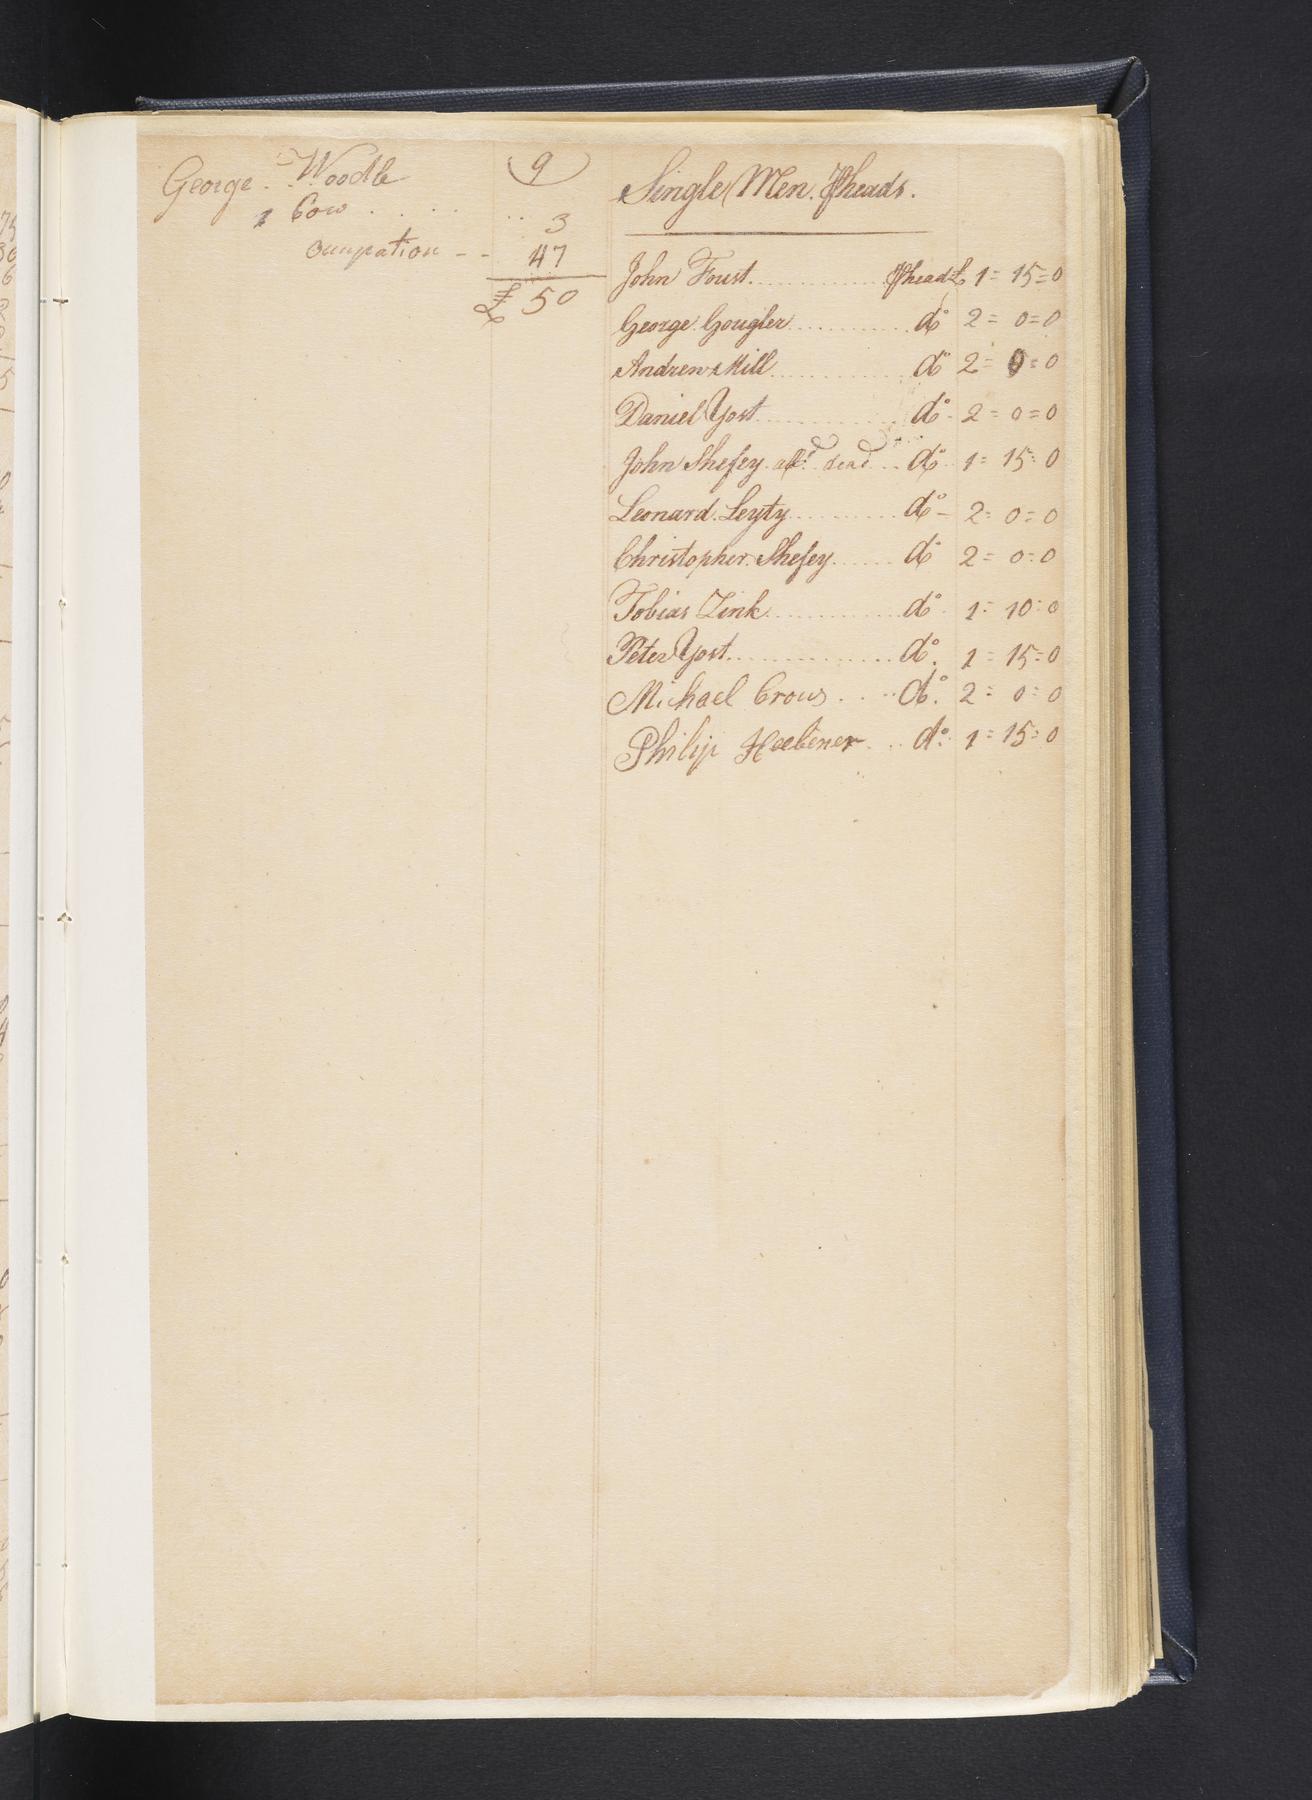 9
George Woodle
1 Cow 3
Occupation -- 47
£ 50
Single Men. ⅌heads.
John Foust ⅌head £ 1=15=0
George Gougler do 2=0=0
Andrew Mill do 2=0=0
Daniel Yost do 2=0=0
John Shefey dead do 1=15=0
Leonard Leyty do 2=0=0
Christopher Shefey do 2=0=0
Tobias Zink do 1=10=0
Peter Yost do 1=15=0
Michael Crous do 2=0=0
Philip Heebener do 1=15=0